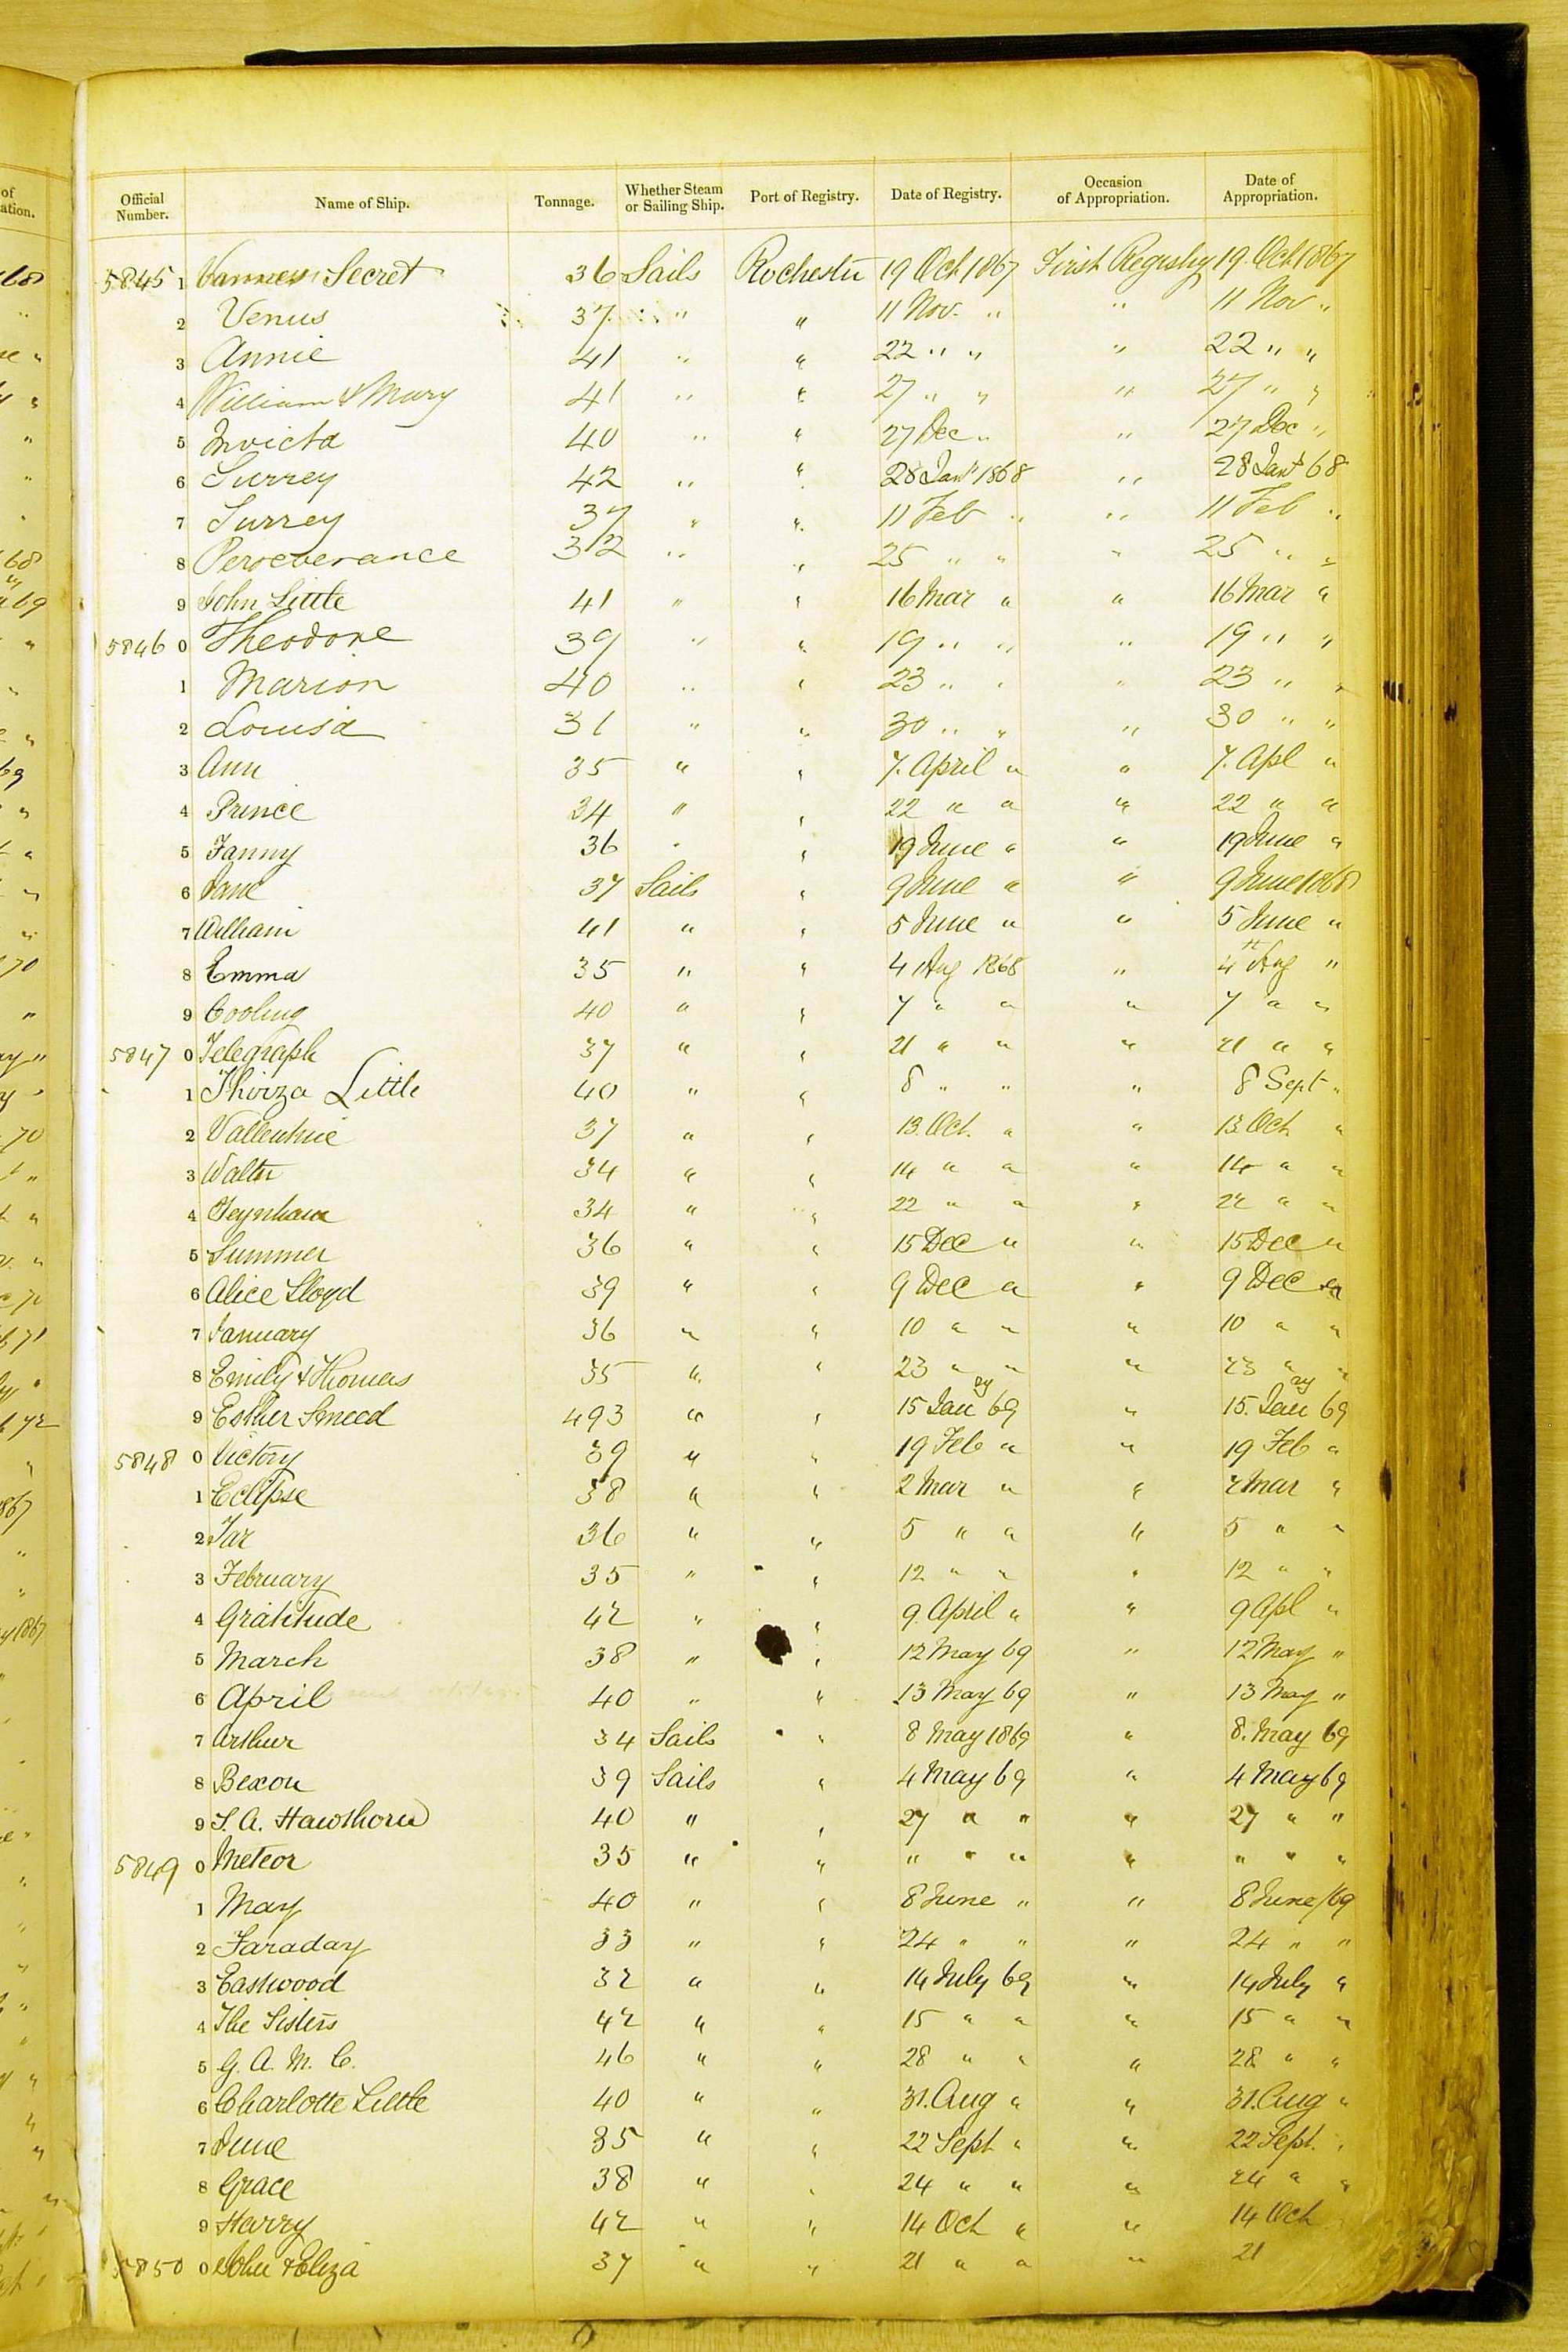 Official Number. Name of Ship. Tonnage. Whether Steam or Sailing Ship. Port of Registry. Date of Registry. Occasion of Appropriation. Date of Appropriation.
5845 1 Secret 36 Sails Rochester 19 Oct 1867 First Registry 19 Oct 1867
2 Venus 37 " " 11 Nov. " " 11 Nov "
3 Annie 41 " " 22 " " " 22 " "
4 William & Mary 41 " " 27 " " " 27 " "
5 Invicta 40 " " 27 Dec " " 27 Dec "
6 Surrey 42 " " 28 Jany 1868 " 28 Jany 68
7 Surrey 37 " " 11 Feb " " 11 Feb "
8 Perseverance 312 " " 25 " " " 25 " "
9 John Little 41 " " 16 Mar " " 16 Mar "
5846 0 Theodore 39 " " 19 " " " 19 " "
1 Marion 40 " " 23 " " " 23 " "
2 Louisa 31 " " 30 " " " 30 " "
3 Ann 35 " " 7. April " " 7. Apl "
4 Prince 34 " " 22 " " " 22 " "
5 Fanny 36 " " 19 June " " 19 June "
6 Jane 37 Sails " 9 June " " 9 June 1868
7 William 41 " " 5 June " " 5 June "
8 Emma 35 " " 4 Aug 1868 " 4th Aug "
9 Cooling 40 " " 7 " " " 7 " "
5847 0 Telegraph 37 " " 21 " " " 21 " "
1 Thirza Little 40 " " 8 " " " 8 Sept "
2 Vallentine 37 " " 13. Oct. " " 13. Oct "
3 Walter 34 " " 14 " " " 14 " "
4 Teynham 34 " " 22 " " " 22 " "
5 Summer 36 " " 15 Dec " " 15 Dec "
6 Alice Lloyd 39 " " 9 Dec " " 9 Dec "
7 January 36 " " 10 " " " 10 " "
8 Emily & Thomas 35 " " 23 " " " 23 " "
9 Esther Smeed 493 " " 15 Jany 69 " 15. Jany 69
5848 0 Victory 39 " " 19 Feb " " 19 Feb "
1 Eclipse 38 " " 2 Mar " " 2 Mar "
2 Tar 36 " " 5 " " " 5 " "
3 February 35 " " 12 " " " 12 " "
4 Gratitude 42 " " 9. April " " 9 Apl "
5 March 38 " " 12 May 69 " 12 May "
6 April 40 " " 13 May 69 " 13 May "
7 Arthur 34 Sails " 8 May 1869 " 8. May 69
8 Bexon 39 Sails " 4 May 69 " 4 May 69
9 S. A. Hawthorn 40 " " 27 " " " 27 " "
5849 0 Meteor 35 " " " " " " " " "
1 May 40 " " 8 June " " 8 June/69
2 Faraday 33 " " 24 " " " 24 " "
3 Eastwood 32 " " 14 July 69 " 14 July "
4 The Sisters 42 " " 15 " " " 15 " "
5 G. A. M. C. 46 " " 28 " " " 28 " "
6 Charlotte Little 40 " " 31. Aug " " 31. Aug "
7 June 35 " " 22 Sept " " 22 Sept. "
8 Grace 38 " " 24 " " " 24 " "
9 Harry 42 " " 14 Oct " " 14 Oct
5850 0 John & Eliza 37 " " 21 " " " 21